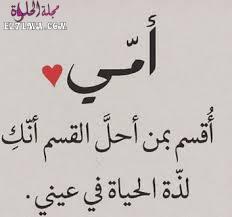 مجلة الحلوة
EL7LWA.COM
أمّي
أُقسم بمن أحلَّ القسم أنّكِ
لذّة الحياة في عيني.